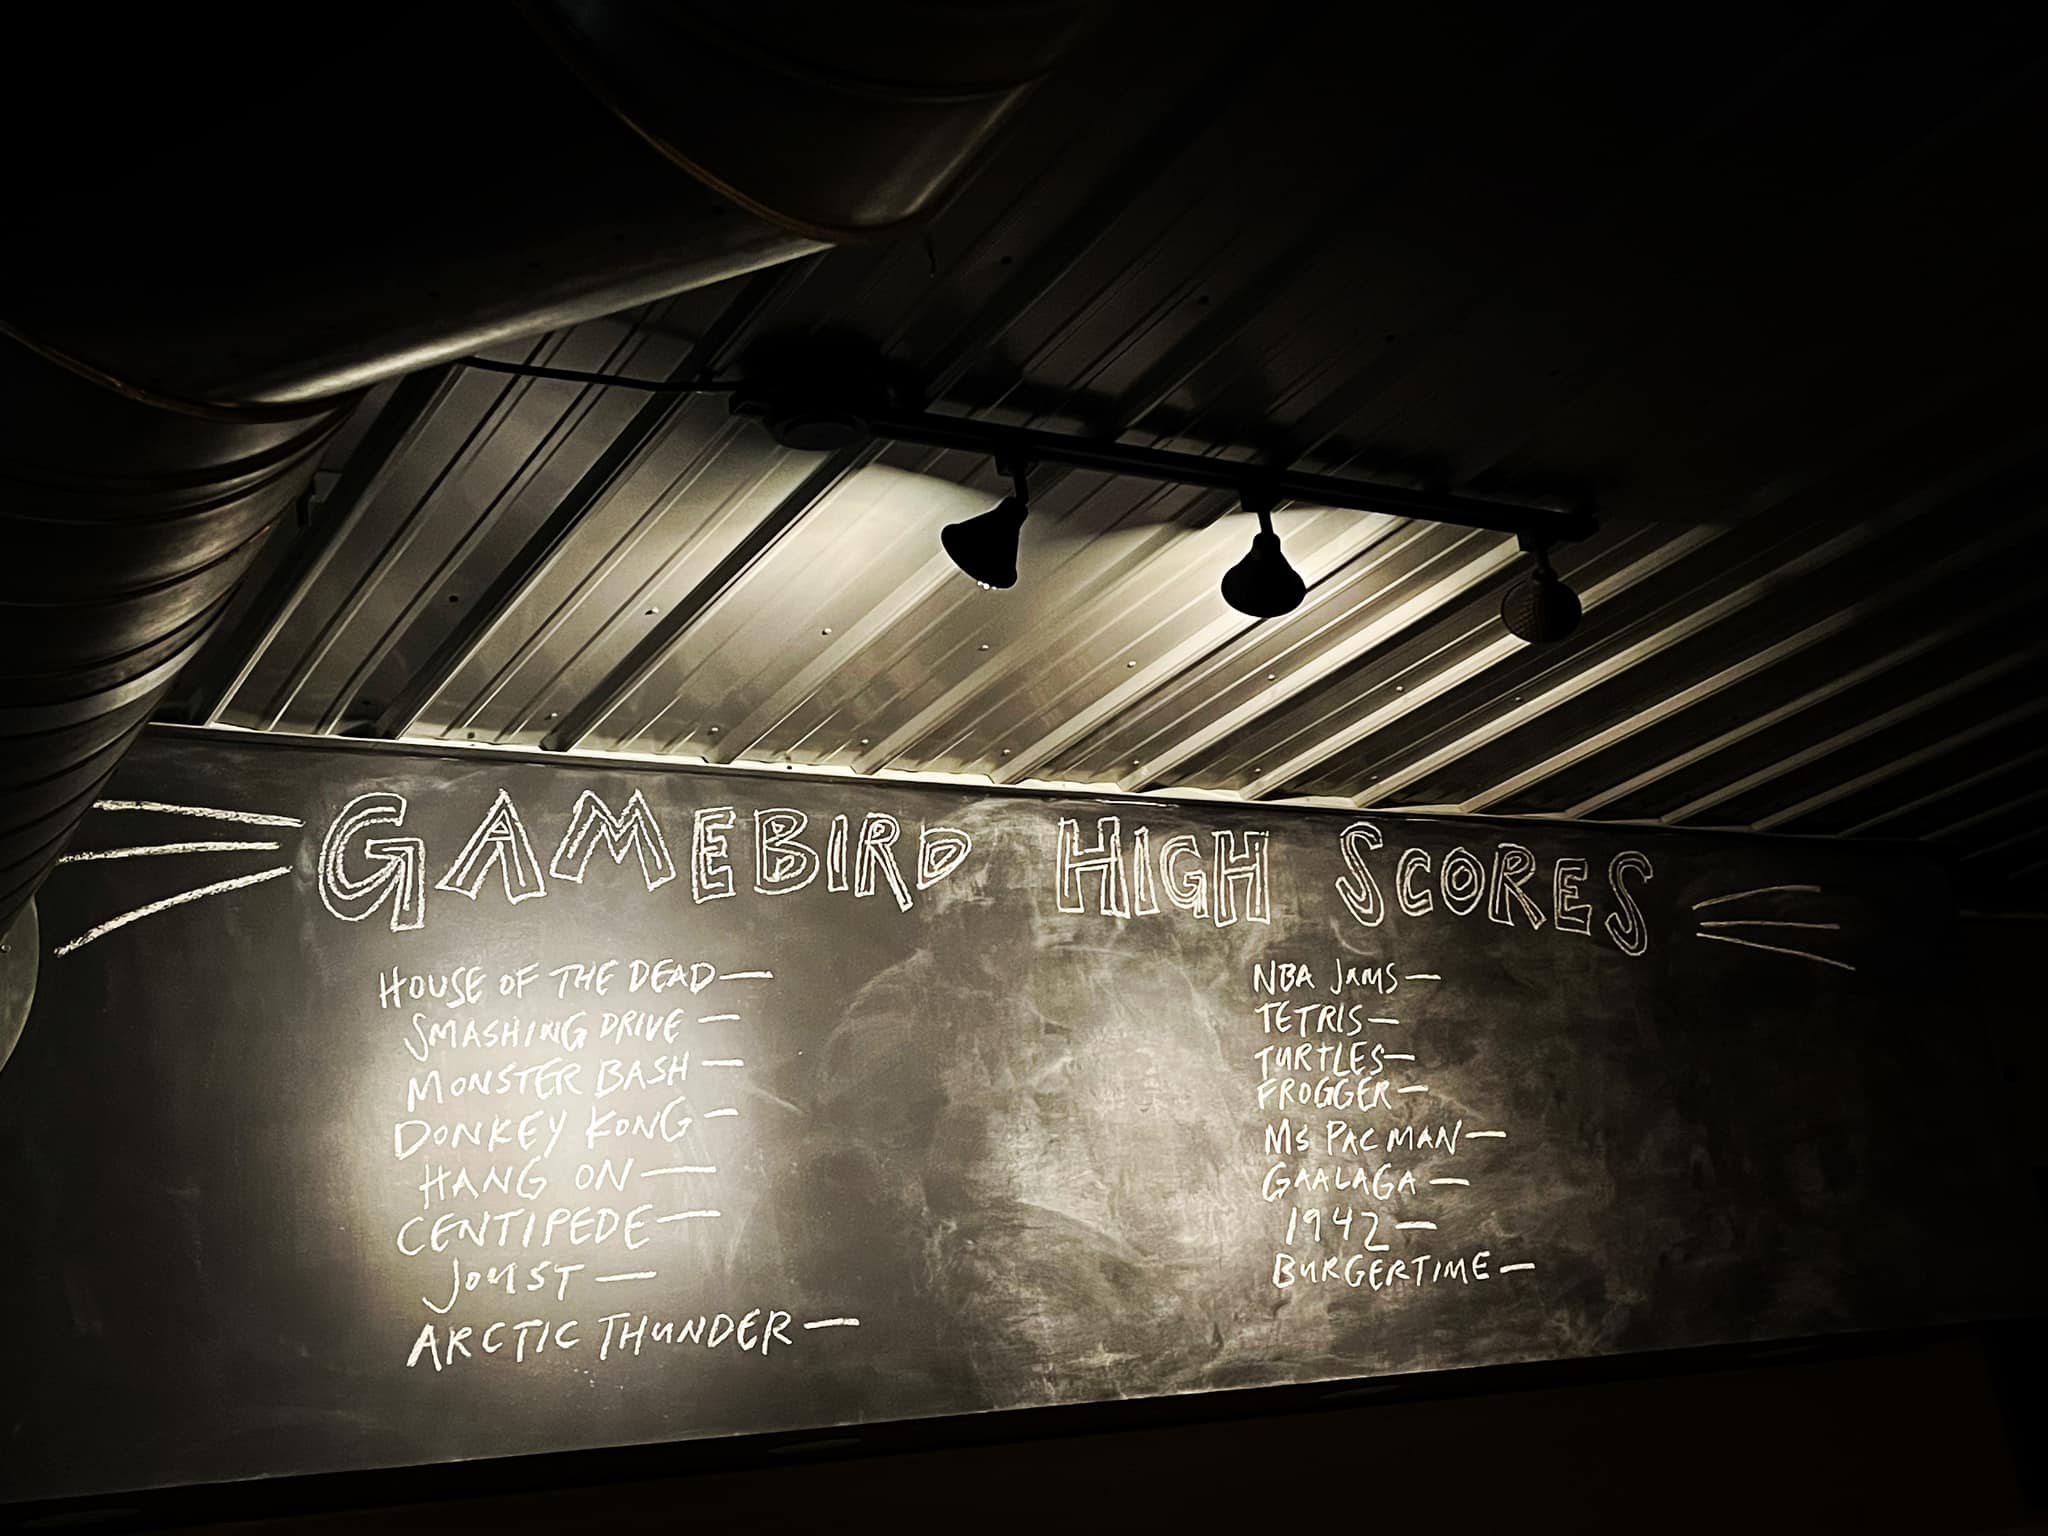 GAMEBIRD HIGH SCORES
HOUSE OF THE DEAD—
SMASHING DRIVE —
MONSTER BASH —
DONKEY KONG —
HANG ON —
CENTIPEDE —
JOUST —
ARCTIC THUNDER —
NBA JAMS —
TETRIS —
TURTLES —
FROGGER —
MS PAC MAN —
GAALAGA —
1942 —
BURGERTIME —